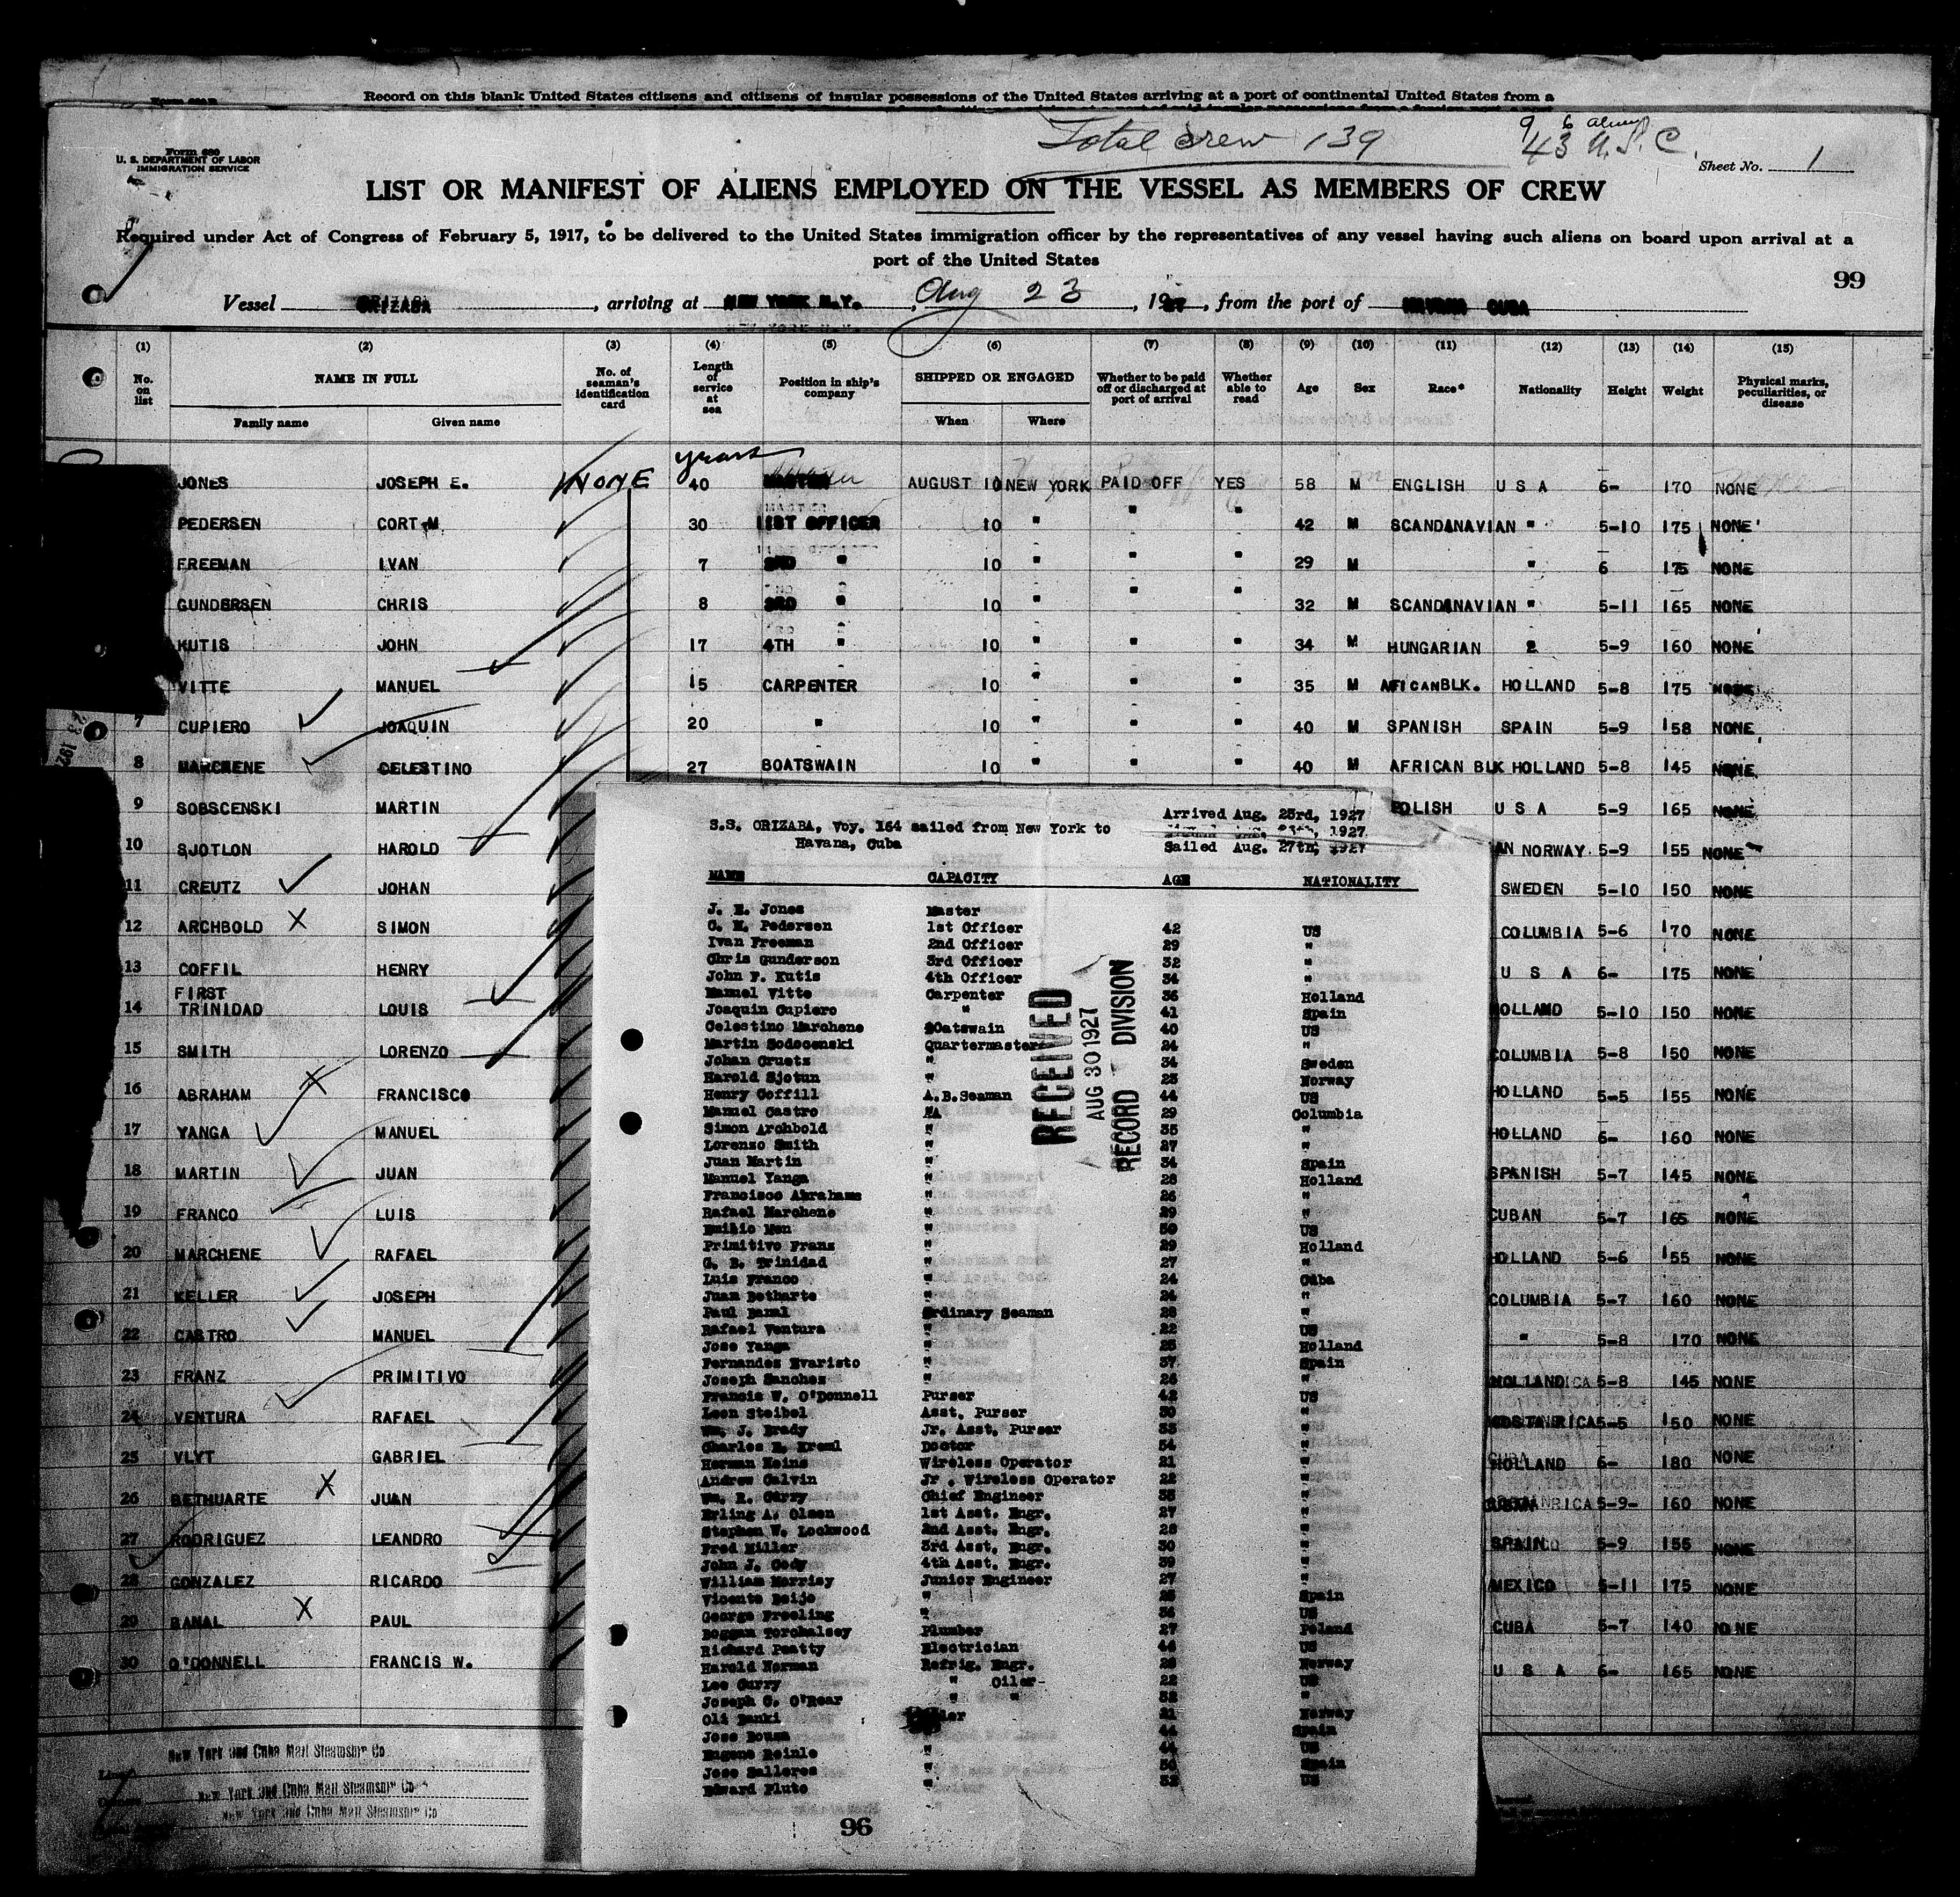 Record on this blank United States citizens and citizens of insular possessions of the United States arriving at a port of continental United States from a
Total crew 139
9 6 aliens
43 U.S.C.
Form 680
U. S. DEPARTMENT OF LABOR
IMMIGRATION SERVICE
Sheet No. 1
LIST OR MANIFEST OF ALIENS EMPLOYED ON THE VESSEL AS MEMBERS OF CREW
Required under Act of Congress of February 5, 1917, to be delivered to the United States immigration officer by the representatives of any vessel having such aliens on board upon arrival at a
port of the United States
99
Vessel ORIZABA, arriving at NEW YORK N.Y., Aug 23, 1927, from the port of HAVANA CUBA
(1) (2) (3) (4) (5) (6) (7) (8) (9) (10) (11) (12) (13) (14) (15)
No. on list NAME IN FULL Family name Given name No. of seaman's identification card Length of service at sea Position in ship's company SHIPPED OR ENGAGED When Where Whether to be paid off or discharged at port of arrival Whether able to read Age Sex Race* Nationality Height Weight Physical marks, peculiarities, or disease
years
JONES JOSEPH E. NONE 40 MASTER AUGUST 10 NEW YORK PAID OFF YES 58 M ENGLISH U S A 6- 170 NONE
PEDERSEN CORT M 30 1ST OFFICER 10 " " " 42 M SCANDANAVIAN " 5-10 175 NONE
FREEMAN IVAN 7 2ND " 10 " " " 29 M " 6 175 NONE
GUNDERSEN CHRIS 8 3RD " 10 " " " 32 M SCANDANAVIAN " 5-11 165 NONE
KUTIS JOHN 17 4TH " 10 " " " 34 M HUNGARIAN 5-9 160 NONE
VITTE MANUEL 15 CARPENTER 10 " " " 35 M AFICANBLK. HOLLAND 5-8 175 NONE
7 CUPIERO JOAQUIN 20 " 10 " " " 40 M SPANISH SPAIN 5-9 158 NONE
8 MARCHENE CELESTINO 27 BOATSWAIN 10 " " " 40 M AFRICAN BLK HOLLAND 5-8 145 NONE
9 SOBSCENSKI MARTIN POLISH U S A 5-9 165 NONE
10 SJOTLON HAROLD AN NORWAY. 5-9 155 NONE
11 CREUTZ JOHAN SWEDEN 5-10 150 NONE
12 ARCHBOLD X SIMON COLUMBIA 5-6 170 NONE
13 COFFIL HENRY U S A 6- 175 NONE
FIRST
14 TRINIDAD LOUIS HOLLAND 5-10 150 NONE
15 SMITH LORENZO COLUMBIA 5-8 150 NONE
16 ABRAHAM X FRANCISCO HOLLAND 5-5 155 NONE
17 YANGA MANUEL HOLLAND 6- 160 NONE
18 MARTIN JUAN SPANISH 5-7 145 NONE
19 FRANCO LUIS CUBAN 5-7 165 NONE
20 MARCHENE RAFAEL HOLLAND 5-6 155 NONE
21 KELLER JOSEPH COLUMBIA 5-7 160 NONE
22 CASTRO MANUEL " 5-8 170 NONE
23 FRANZ PRIMITIVO HOLLAND 5-8 145 NONE
24 VENTURA RAFAEL COSTA RICA 5-5 150 NONE
25 VLYT GABRIEL HOLLAND 6- 180 NONE
26 BETHUARTE X JUAN 5-9- 160 NONE
27 RODRIGUEZ LEANDRO SPAIN 5-9 155 NONE
28 GONZALEZ RICARDO MEXICO 5-11 175 NONE
29 BANAL X PAUL CUBA 5-7 140 NONE
30 O'DONNELL FRANCIS W. U S A 6- 165 NONE
New York and Cuba Mail Steamship Co
New York and Cuba Mail Steamship Co
New York and Cuba Mail Steamship Co
S.S. ORIZABA, Voy. 164 sailed from New York to
Havana, Cuba
Arrived Aug. 23rd, 1927
Sailed Aug. 27th, 1927
NAME CAPACITY AGE NATIONALITY
J. E. Jones Master
C. M. Pedersen 1st Officer 42 US
Ivan Freeman 2nd Officer 29 "
Chris Gunderson 3rd Officer 32 "
John F. Kutis 4th Officer 34 "
Manuel Vitte Carpenter 36 Holland
Joaquin Cupiero " 41 Spain
Celestino Marchene Boatswain 40 US
Martin Sodecenski Quartermaster 24 "
Johan Cruetz " 34 Sweden
Harold Sjotun " 25 Norway
Henry Coffill A.B.Seaman 44 US
Manuel Castro " 29 Columbia
Simon Archbold " 35 "
Lorenzo Smith " 27 "
Juan Martin " 34 Spain
Manuel Yanga " 28 Holland
Francisco Abrahams " 26 "
Rafael Marchene " 29 "
Emilio Men " 30 US
Primitivo Franz " 29 Holland
G. B. Trinidad " 27 "
Luis Franco " 24 Cuba
Juan Betharte " 24 "
Paul Banal Ordinary Seaman 28 "
Rafael Ventura " 22 US
Jose Yanga " 25 Holland
Fernandes Evaristo " 37 Spain
Joseph Sanchez " 26 "
Francis W. O'Donnell Purser 42 US
Leon Steibel Asst. Purser 30 "
Wm. J. Brady Jr. Asst. Purser 53 "
Charles E. Kreml Doctor 54 "
Herman Heins Wireless Operator 21 "
Andrew Galvin Jr. Wireless Operator 22 "
Wm. R. Curry Chief Engineer 35 "
Erling A. Olsen 1st Asst. Engr. 27 "
Stephen W. Lockwood 2nd Asst. Engr. 28 "
Fred Miller 3rd Asst. Engr. 30 "
John J. Cody 4th Asst. Engr. 39 "
William Morrisy Junior Engineer 27 "
Vicente Beijo " 25 Spain
George Freeling " 36 US
Boggan Torchalsey Plumber 27 Poland
Richard Peatty Electrician 44 US
Harold Norman Refrig. Engr. 28 Norway
Leo Curry " Oiler 22 US
Joseph C. O'Rear " " 32 "
Oli Danki 21 Norway
Jose Bousa " 44 Spain
Eugene Reinle " 44 US
Jose Salleres " 30 Spain
Edward Flute " 32 US
RECEIVED
AUG 30 1927
RECORD DIVISION
96